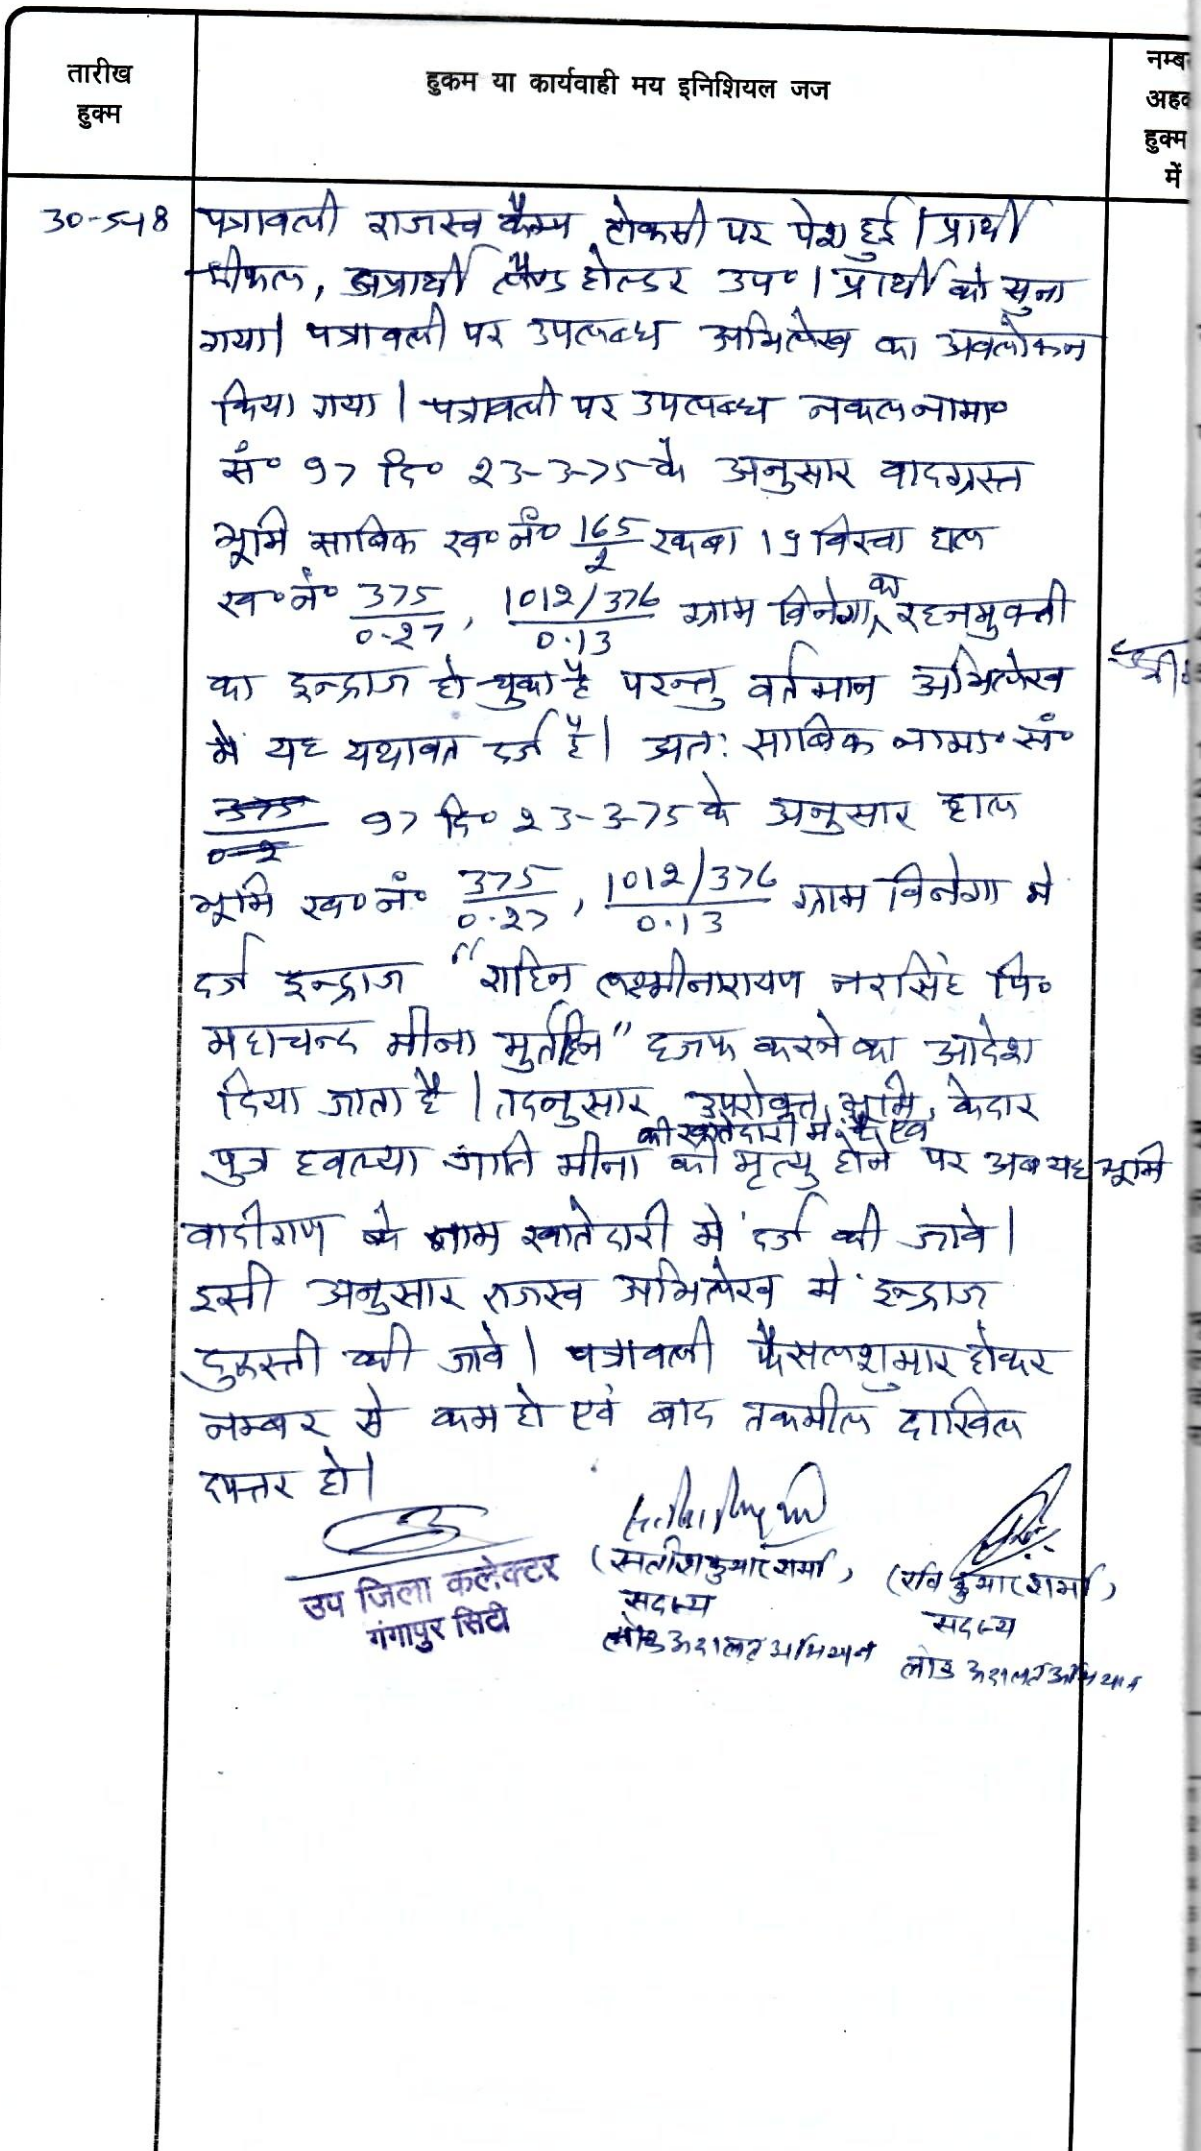 तारीख
हुक्म
हुकम या कार्यवाही मय इनिशियल जज
नम्ब
अहक
हुक्म
में
30-5-18
पत्रावली राजस्व कैम्प टोकसी पर पेश हुई। प्रार्थी
अप्रार्थी लैण्ड होल्डर उप०। प्रार्थी को सुना
गया। पत्रावली पर उपलब्ध अभिलेख का अवलोकन
किया गया। पत्रावली पर उपलब्ध नकल नामा०
सं० 97 दि० 23-3-75 के अनुसार वादग्रस्त
भूमि साबिक ख० नं० 165/2 रकबा 19 विस्वा हाल
ख० नं० 375/0.27, 1012/376/0.13 ग्राम बिनेगा का रहनमुक्ती
का इन्द्राज हो चुका है परन्तु वर्तमान अभिलेख
मे यह यथावत दर्ज है। अतः साबिक नामा० सं०
97 दि० 23-3-75 के अनुसार हाल
भूमि ख० नं० 375/0.27, 1012/376/0.13 ग्राम बिनेगा मे
दर्ज इन्द्राज "राहिन लक्ष्मीनारायण नरसिंह पि०
महाचन्द मीना मुर्तहिन" हजफ करने का आदेश
दिया जाता है। तदनुसार उपरोक्त भूमि केदार
की खातेदारी मे है एवं
पुत्र हवल्या जाति मीना की मृत्यु होने पर अब यह भूमि
वादीगण के नाम खातेदारी मे दर्ज की जावे।
इसी अनुसार राजस्व अभिलेख मे इन्द्राज
दुरुस्ती की जावे। पत्रावली फैसलशुमार होकर
नम्बर से कम हो एवं बाद तकमील दाखिल
दफ्तर हो।
उप जिला कलेक्टर
गंगापुर सिटी
(सतीश कुमार शर्मा)
सदस्य
लोक अदालत अभियान
(रवि कुमार शर्मा)
सदस्य
लोक अदालत अभियान